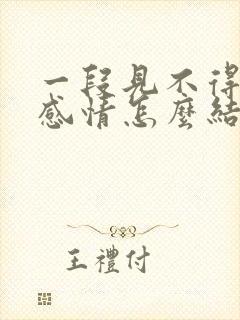 一段見不得
感情怎麼結
王禮付